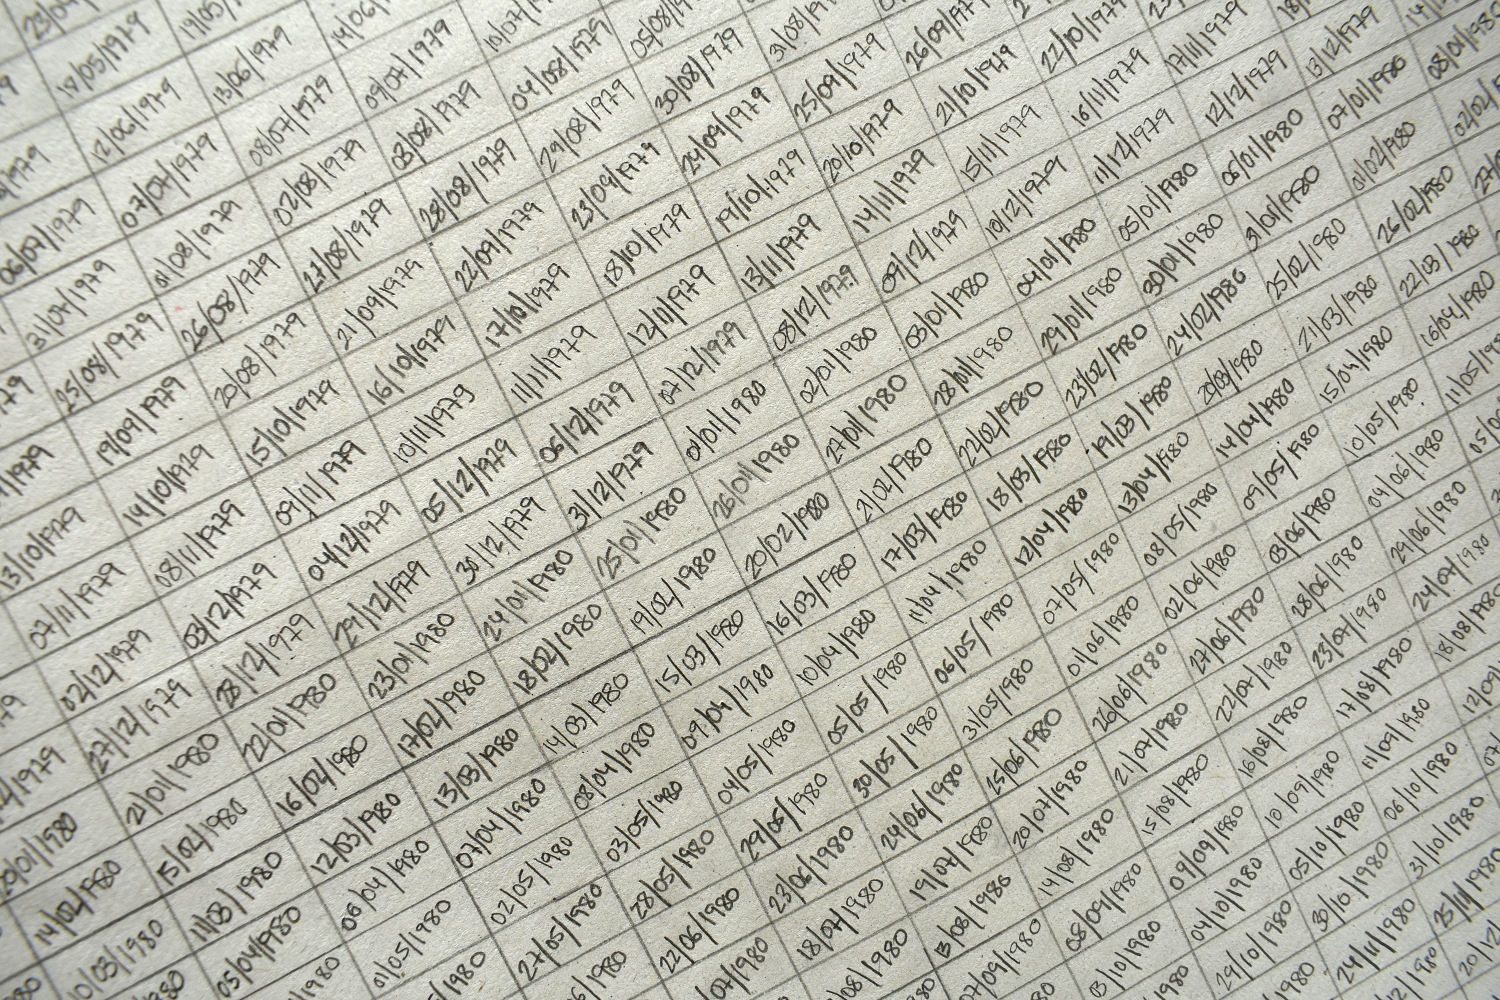 18/05/1979
12/06/1979 13/06/1979
06/07/1979 07/07/1979 08/07/1979 09/07/1979
31/07/1979 01/08/1979 02/08/1979 03/08/1979 04/08/1979
25/08/1979 26/08/1979 27/08/1979 28/08/1979 29/08/1979 30/08/1979
19/09/1979 20/08/1979 21/09/1979 22/09/1979 23/09/1979 24/09/1979 25/09/1979 26/09/1979
13/10/1979 14/10/1979 15/10/1979 16/10/1979 17/10/1979 18/10/1979 19/10/1979 20/10/1979 21/10/1979 22/10/1979
07/11/1979 08/11/1979 09/11/1979 10/11/1979 11/11/1979 12/11/1979 13/11/1979 14/11/1979 15/11/1979 16/11/1979 17/11/1979
02/12/1979 03/12/1979 04/12/1979 05/12/1979 06/12/1979 07/12/1979 08/12/1979 09/12/1979 10/12/1979 11/12/1979 12/12/1979 13/12/1979
27/12/1979 28/12/1979 29/12/1979 30/12/1979 31/12/1979 01/01/1980 02/01/1980 03/01/1980 04/01/1980 05/01/1980 06/01/1980 07/01/1980 08/01/1980
20/01/1980 21/01/1980 22/01/1980 23/01/1980 24/01/1980 25/01/1980 26/01/1980 27/01/1980 28/01/1980 29/01/1980 30/01/1980 31/01/1980 01/02/1980
14/02/1980 15/02/1980 16/02/1980 17/02/1980 18/02/1980 19/02/1980 20/02/1980 21/02/1980 22/02/1980 23/02/1980 24/02/1980 25/02/1980 26/02/1980
10/03/1980 11/03/1980 12/03/1980 13/03/1980 14/03/1980 15/03/1980 16/03/1980 17/03/1980 18/03/1980 19/03/1980 20/03/1980 21/03/1980 22/03/1980
05/04/1980 06/04/1980 07/04/1980 08/04/1980 09/04/1980 10/04/1980 11/04/1980 12/04/1980 13/04/1980 14/04/1980 15/04/1980 16/04/1980
01/05/1980 02/05/1980 03/05/1980 04/05/1980 05/05/1980 06/05/1980 07/05/1980 08/05/1980 09/05/1980 10/05/1980
27/05/1980 28/05/1980 29/05/1980 30/05/1980 31/05/1980 01/06/1980 02/06/1980 03/06/1980 04/06/1980
22/06/1980 23/06/1980 24/06/1980 25/06/1980 26/06/1980 27/06/1980 28/06/1980 29/06/1980
18/07/1980 19/07/1980 20/07/1980 21/07/1980 22/07/1980 23/07/1980 24/07/1980
13/08/1980 14/08/1980 15/08/1980 16/08/1980 17/08/1980 18/08/1980
08/09/1980 09/09/1980 10/09/1980 11/09/1980
03/10/1980 04/10/1980 05/10/1980 06/10/1980
29/10/1980 30/10/1980 31/10/1980
24/11/1980 25/11/1980